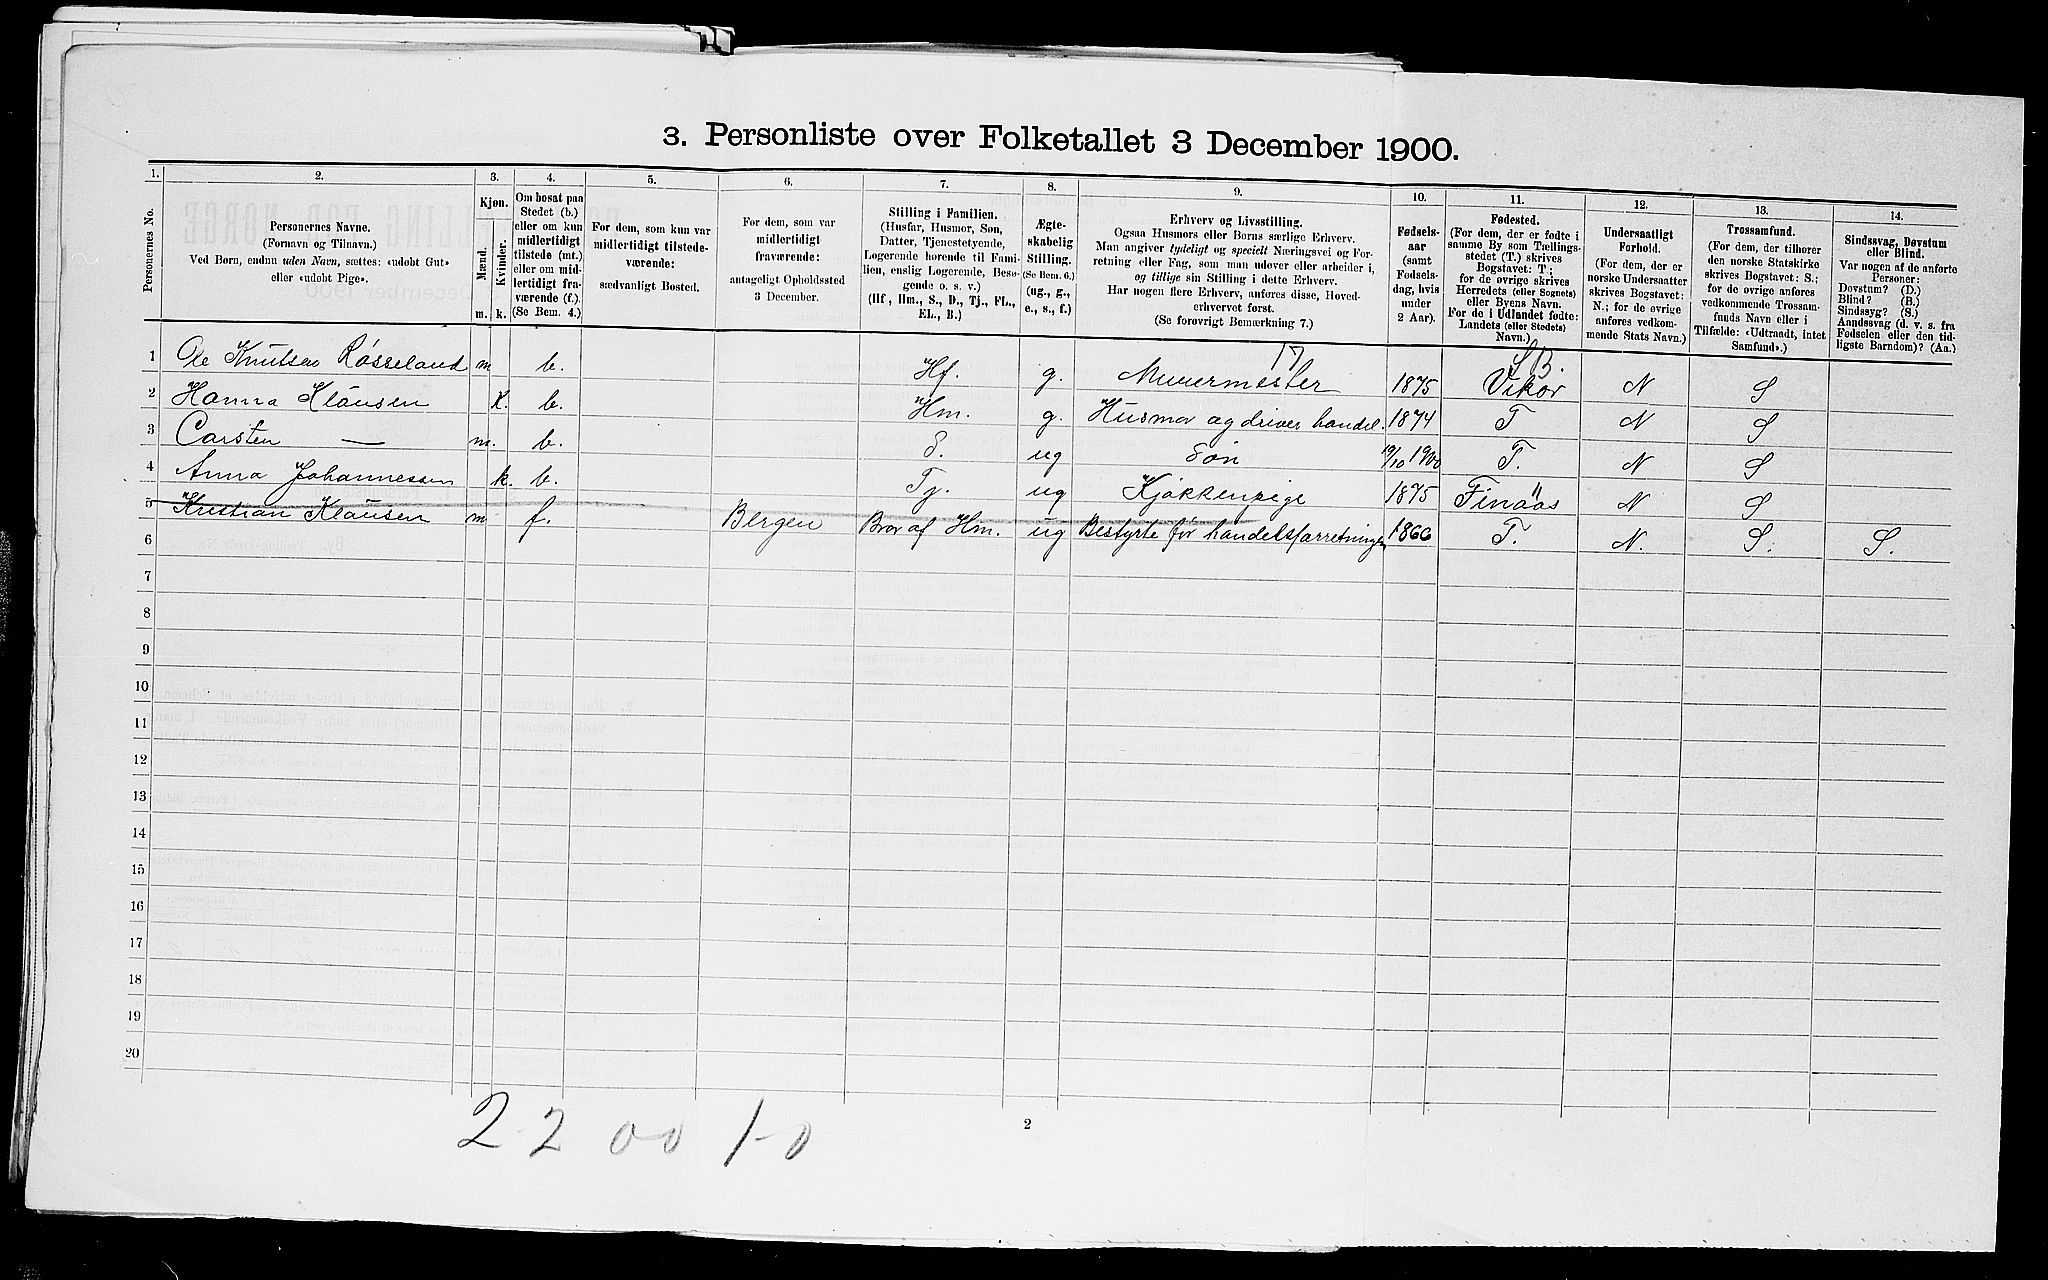 3. Personliste over Folketallet 3 December 1900.
1. 2. 3. 4. 5. 6. 7. 8. 9. 10. 11. 12. 13. 14.
Personernes No.
Personernes Navne.
(Fornavn og Tilnavn.)
Ved Børn, endnu uden Navn, sættes: «udøbt Gut»
eller «udøbt Pige».
Kjøn.
Mænd.
Kvinder.
m. k.
Om bosat paa
Stedet (b.)
eller om kun
midlertidigt
tilstede (mt.)
eller om mid-
lertidigt fra-
værende (f.).
(Se Bem. 4.)
For dem, som kun var
midlertidigt tilstede-
værende:
sædvanligt Bosted.
For dem, som var
midlertidigt
fraværende:
antageligt Opholdssted
3 December.
Stilling i Familien.
(Husfar, Husmor, Søn,
Datter, Tjenestetyende,
Logerende hørende til Fami-
lien, enslig Logerende, Besø-
gende o. s. v.)
(Hf., Hm., S., D., Tj., FL.,
EL., B.)
Ægte-
skabelig
Stilling.
(Se Bem. 6.)
(ug., g.,
e., s., f.)
Erhverv og Livsstilling.
Ogsaa Husmors eller Børns særlige Erhverv.
Man angiver tydeligt og specielt Næringsvei og For-
retning eller Fag, som man udøver eller arbeider i,
og tillige sin Stilling i dette Erhverv.
Har nogen flere Erhverv, anføres disse, Hoved-
erhvervet først.
(Se forøvrigt Bemærkning 7.)
Fødsels-
aar
(samt
Fødsels-
dag, hvis
under
2 Aar).
Fødested.
(For dem, der er fødte i
samme By som Tællings-
stedet (T.) skrives
Bogstavet: T;
for de øvrige skrives
Herredets (eller Sognets)
eller Byens Navn.
For de i Udlandet fødte:
Landets (eller Stedets)
Navn.)
Undersaatligt
Forhold.
(For dem, der er
norske Undersaatter
skrives Bogstavet:
N.; for de øvrige
anføres vedkom-
mende Stats Navn.)
Trossamfund.
(For dem, der tilhører
den norske Statskirke
skrives Bogstavet: S.;
for de øvrige anføres
vedkommende Trossam-
funds Navn eller i
Tilfælde: «Udtraadt, intet
Samfund».)
Sindssvag, Døvstum
eller Blind.
Var nogen af de anførte
Personer:
Døvstum? (D.)
Blind? (B.)
Sindssyg? (S.)
Aandssvag (d. v. s. fra
Fødselen eller den tid-
ligste Barndom)? (Aa.)
17 S B.
1 Ole Knutsen Røsseland m b. Hf. g. Muuermester 1875 Vikør N S
2 Hanna Klausen K. b. Hm. g. Husmor og driver handel. 1874 T N S
3 Carsten — m. b. S. ug Søn 19/10 1900 T. N S
4 Anna Johannessen k. b. Tj. ug Kjøkkenpige 1875 Finaas N S
5 Kristian Klausen m f. Bergen Bror af Hm. ug Bestyrte før handelsforretningen 1866 T. N. S. S.
6
7
8
9
10
11
12
13
14
15
16
17
18
19
20
2 2 00 1-0
2